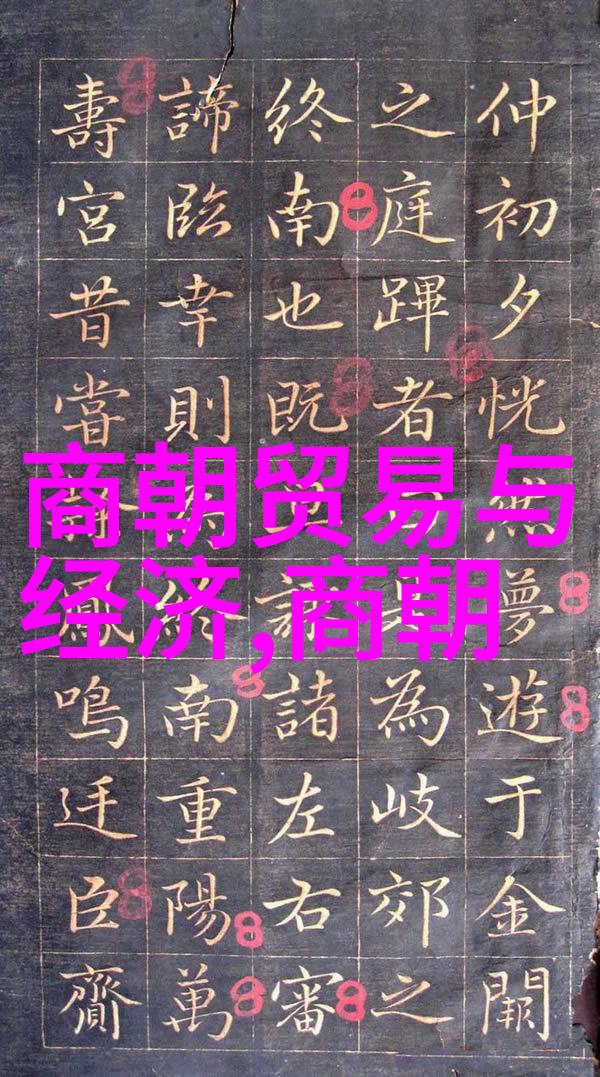 商朝贸易与
经济,商朝
仲初夕恍然夢遊于金闕
之庭蹕者為岐郊之
終南也既諸左右審
諦臨幸則終南重陽萬
壽宮昔嘗鳳鳴迋臣齎